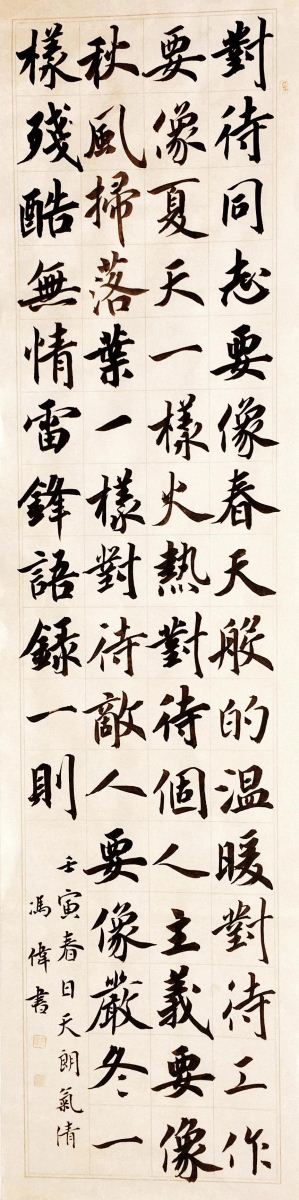 對待同志要像春天般的溫暖對待工作
要像夏天一樣火熱對待個人主義要像
秋風掃落葉一樣對待敵人要像嚴冬一
樣殘酷無情雷鋒語錄一則
壬寅春日天朗氣清
馮偉書